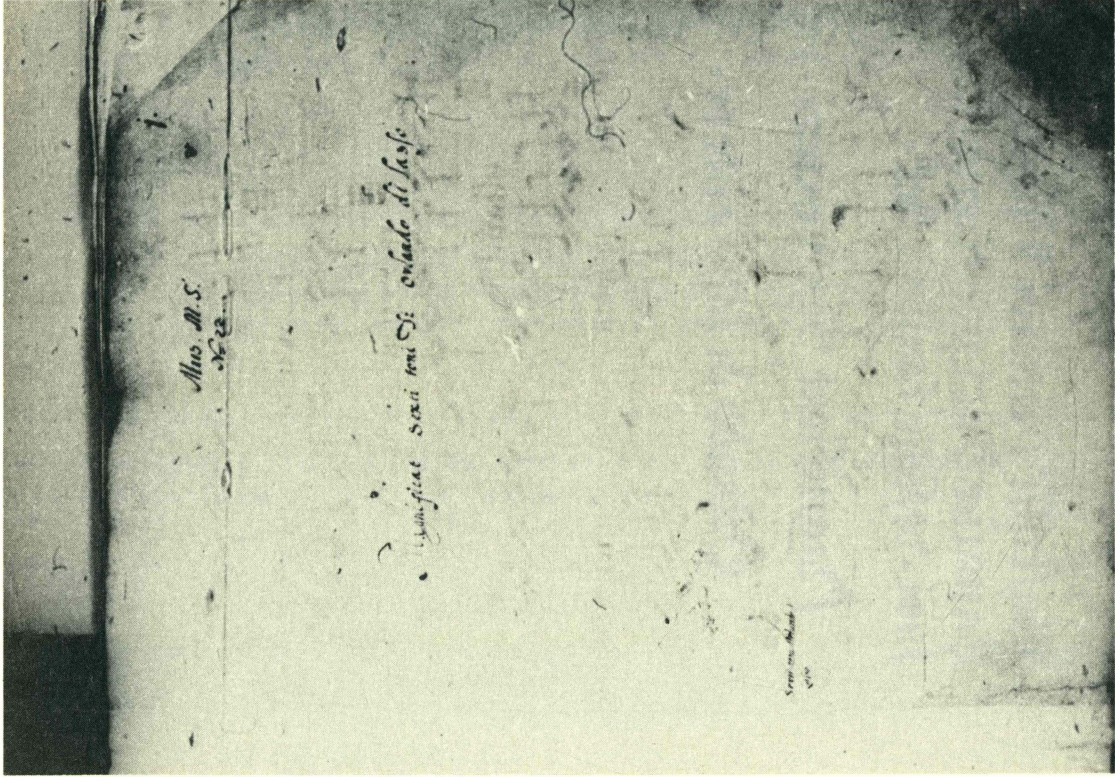 j.
Mus. M.S.
No 22
Magnificat sexti toni Di orlando di lasso